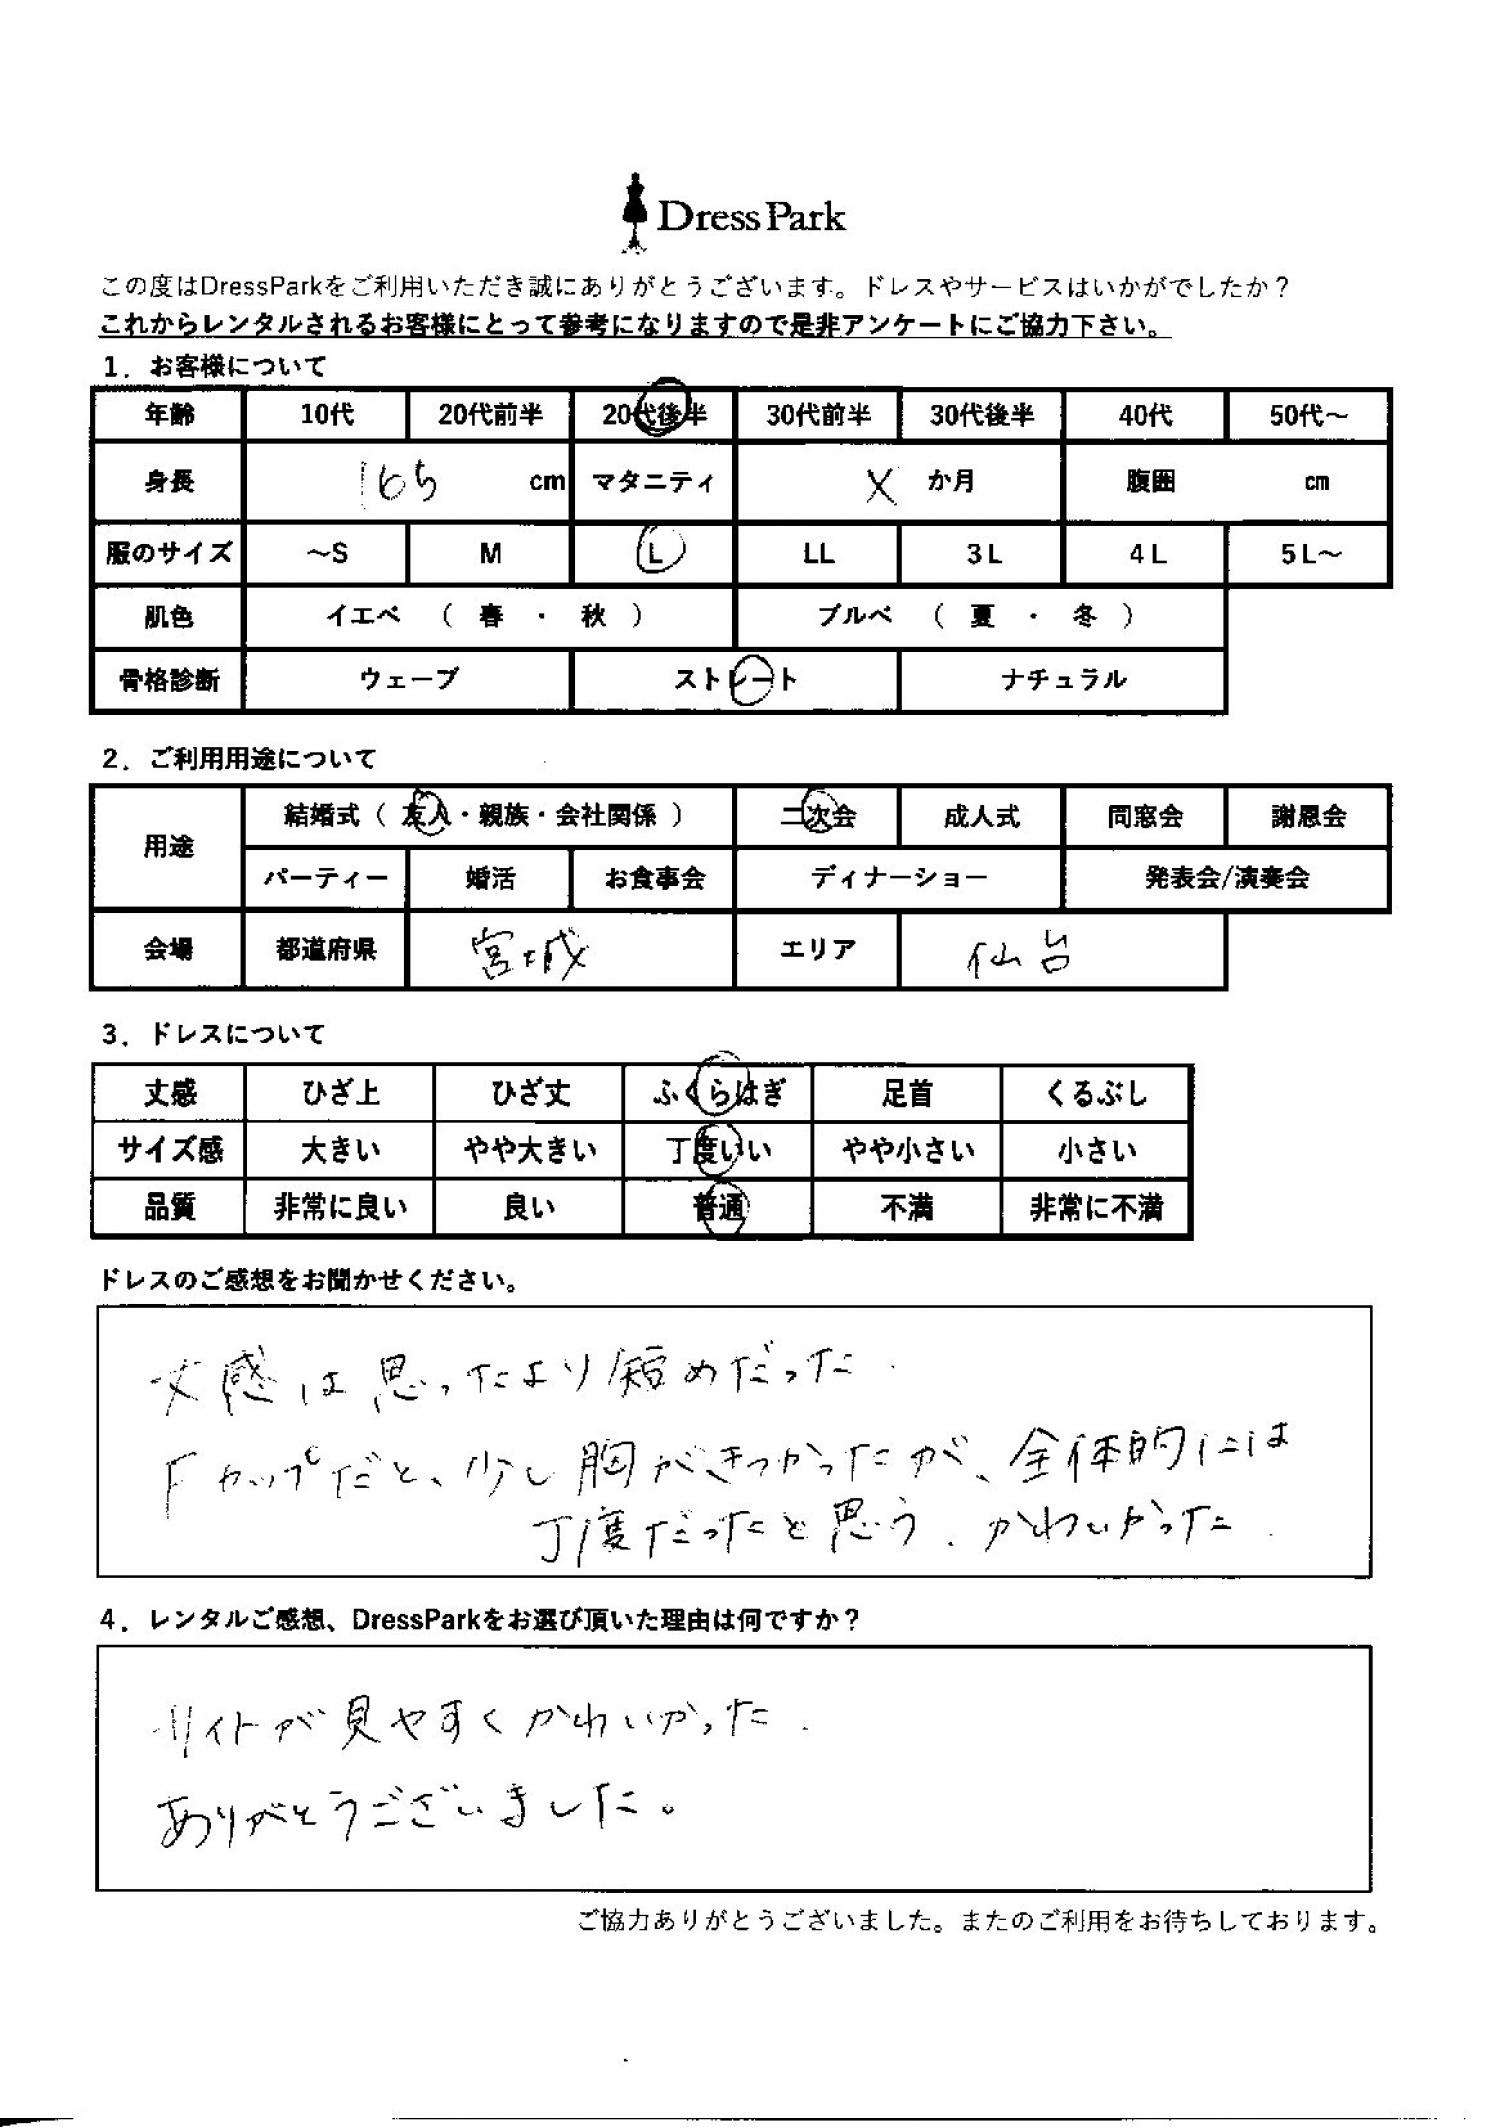 Dress Park
この度はDressParkをご利用いただき誠にありがとうございます。ドレスやサービスはいかがでしたか？
これからレンタルされるお客様にとって参考になりますので是非アンケートにご協力下さい。
1．お客様について
年齢 10代 20代前半 20代後半 30代前半 30代後半 40代 50代～
身長 165 cm マタニティ × か月 腹囲 cm
服のサイズ ～S M L LL 3L 4L 5L～
肌色 イエベ （ 春 ・ 秋 ） ブルベ （ 夏 ・ 冬 ）
骨格診断 ウェーブ ストレート ナチュラル
2．ご利用用途について
用途 結婚式（ 友人・親族・会社関係 ） 二次会 成人式 同窓会 謝恩会
パーティー 婚活 お食事会 ディナーショー 発表会/演奏会
会場 都道府県 宮城 エリア 仙台
3．ドレスについて
丈感 ひざ上 ひざ丈 ふくらはぎ 足首 くるぶし
サイズ感 大きい やや大きい 丁度いい やや小さい 小さい
品質 非常に良い 良い 普通 不満 非常に不満
ドレスのご感想をお聞かせください。
丈感は思ったより短めだった.
Fカップだと、少し胸がきつかったが、全体的には
丁度だったと思う. かわいかった.
4．レンタルご感想、DressParkをお選び頂いた理由は何ですか？
サイトが見やすくかわいかった.
ありがとうございました。
ご協力ありがとうございました。またのご利用をお待ちしております。